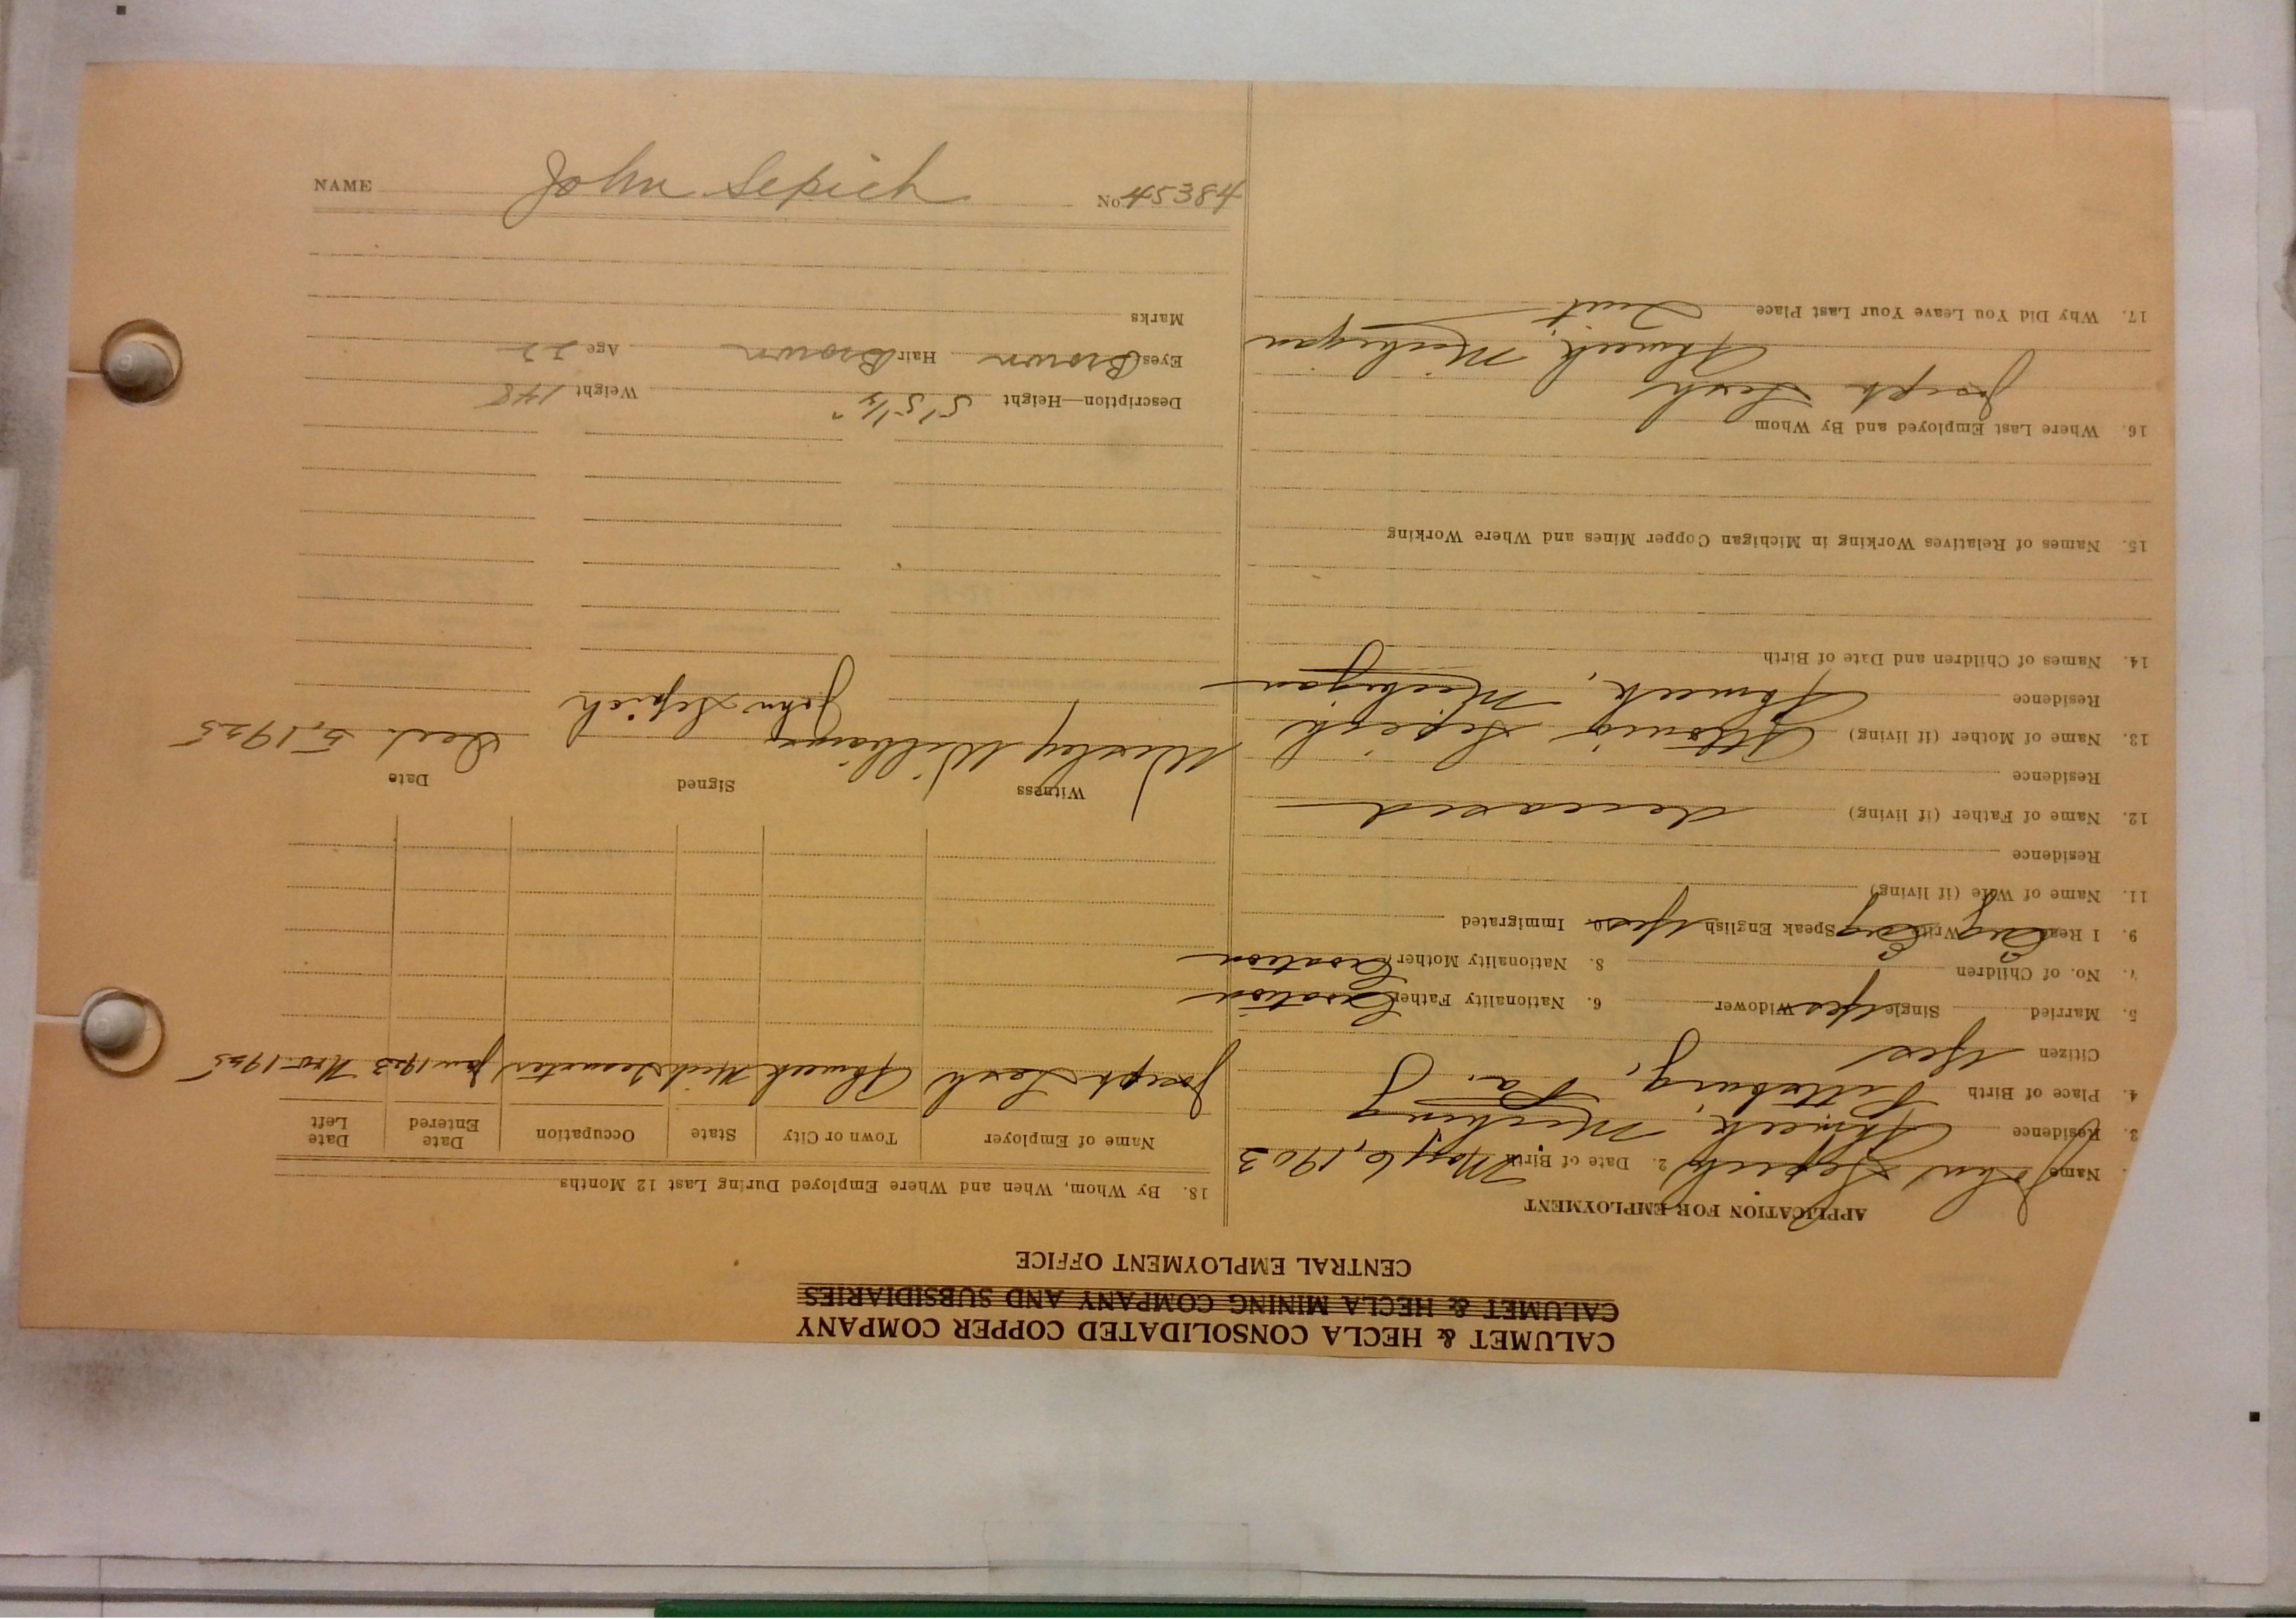 CALUMET & HECLA CONSOLIDATED COPPER COMPANY
CALUMET & HECLA MINING COMPANY AND SUBSIDIARIES
CENTRAL EMPLOYMENT OFFICE
APPLICATION FOR EMPLOYMENT
Name John Sepich 2. Date of Birth May 6, 1903
3. Residence Ahmeek, Michigan
4. Place of Birth Pittsburg, Pa.
Citizen Yes
5. Married Single Yes Widower 6. Nationality Father Croation
7. No. of Children 8. Nationality Mother Croation
9. I Read Eng Write Eng Speak English Yes 10. Immigrated
11. Name of Wife (if living)
Residence
12. Name of Father (if living) deceased
Residence
13. Name of Mother (if living) Sepich
Residence Ahmeek, Michigan
14. Names of Children and Date of Birth
15. Names of Relatives Working in Michigan Copper Mines and Where Working
16. Where Last Employed and By Whom
Joseph Lesh
Ahmeek, Michigan
17. Why Did You Leave Your Last Place Quit
18. By Whom, When and Where Employed During Last 12 Months
Name of Employer Town or City State Occupation Date Entered Date Left
Joseph Lesh Ahmeek Mich Teamster Jan 1923 Nov. 1925
Witness Signed Date
Wesley Williams John Sepich Dec. 5, 1925
Description—Height 5' 5 1/2" Weight 148
Eyes Brown Hair Brown Age 22
Marks
NAME John Sepich No. 45384